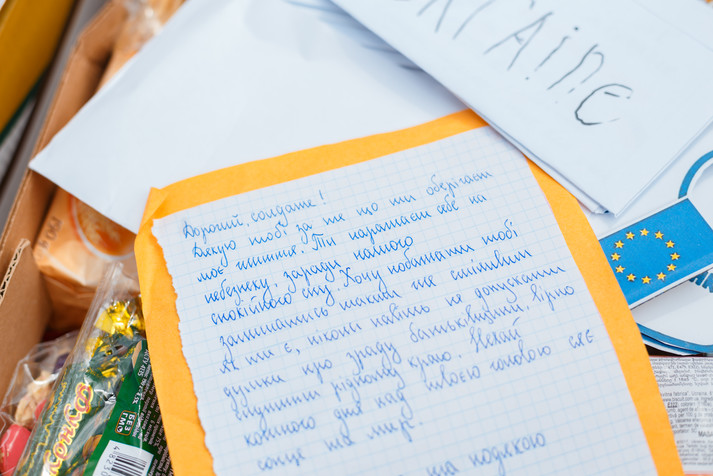 Ukraïne
Дорогий, солдате!
Дякую тобі за те що ти оберігаєш
моє життя. Ти наражаєш себе на
небезпеку, заради нашого
спокійного сну. Хочу побажати тобі
залишатись таким же сміливим
як ти є, ніколи навіть не допускати
думки про зраду батьківщини. Вірно
служити рідному краю. Нехай
кожного дня над твоєю головою сяє
сонце та мир.
та подякою
БЕЗ
ГМО